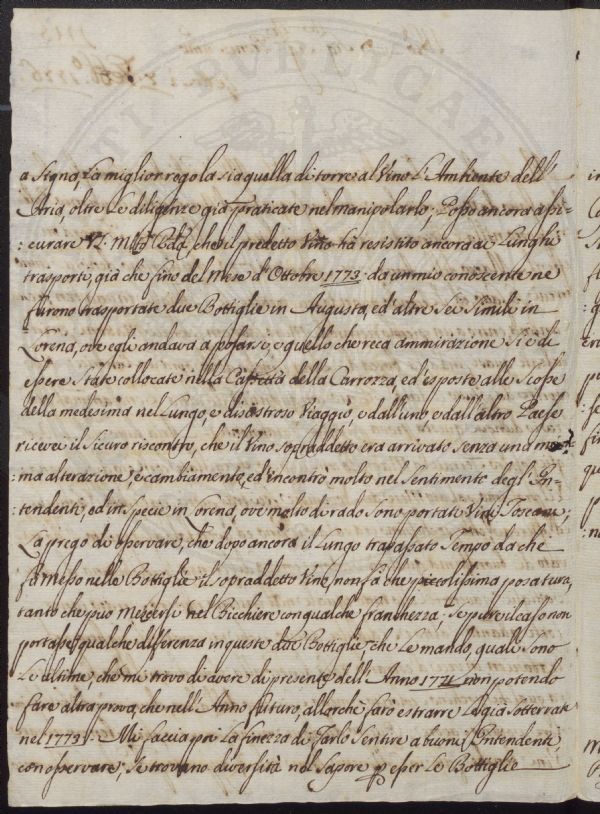 a Signa, La miglior regola sia quella di torre al Vino L'Ambiente dell'
Aria, oltre Le diligenze già praticate nel manipolarlo; Posso ancora assi-
:curare che il predetto Vino ha resistito ancora ai Lunghi
trasporti, già che fino del Mese d'Ottobre 1773. da un mio conoscente ne
furono trasportate due Bottiglie in Augusta, ed altre sei Simili in
Lorena, ove egli andava a posarsi, e quello che reca ammirazione si è di
essere State collocate nella Cassetta della Carrozza, ed esposte alle Scosse
della medesima nel Lungo, e disastroso Viaggio, e dall'uno, e dall'altro Paese
ricevei il Sicuro riscontro, che il Vino sopraddetto era arrivato senza una
:ma alterazione, e cambiamento, ed incontrò molto nel Sentimento degl'In-
tendenti, ed in Specie in Lorena, ove molto di rado Sono portati Vini Toscani;
La prego di osservare, che dopo ancora il Lungo trapassato Tempo da che
fù Messo nelle Bottiglie il sopraddetto Vino, non fà che piccolissima posatura,
tanto che può Mescersi nel Bicchiere con qualche franchezza; Se pure il caso non
portasse qualche differenza in queste due Bottiglie, che Le mando, quali Sono
Le ultime, che mi trovo di avere di presente dell'Anno 1771. non potendo
fare altra prova, che nell'Anno futuro, allorchè farò estrarre Le già Sotterrate
nel 1773. Mi faccia poi La finezza di farlo Sentire a buoni Intendenti,
con osservare, Se trovano diversità nel Sapore p esser Le Bottiglie